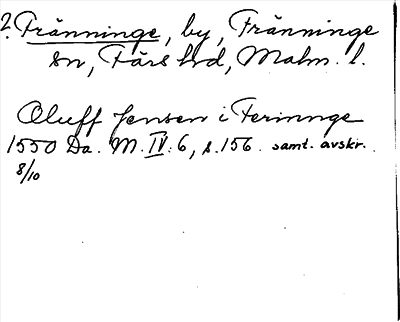 ?Fränninge, by, Fränninge
sn, Färs hd, Malm. l.
Oluff Jensen i Ferinnge
1550 Da. M. IV: 6, s. 156. samt. avskr.
8/10